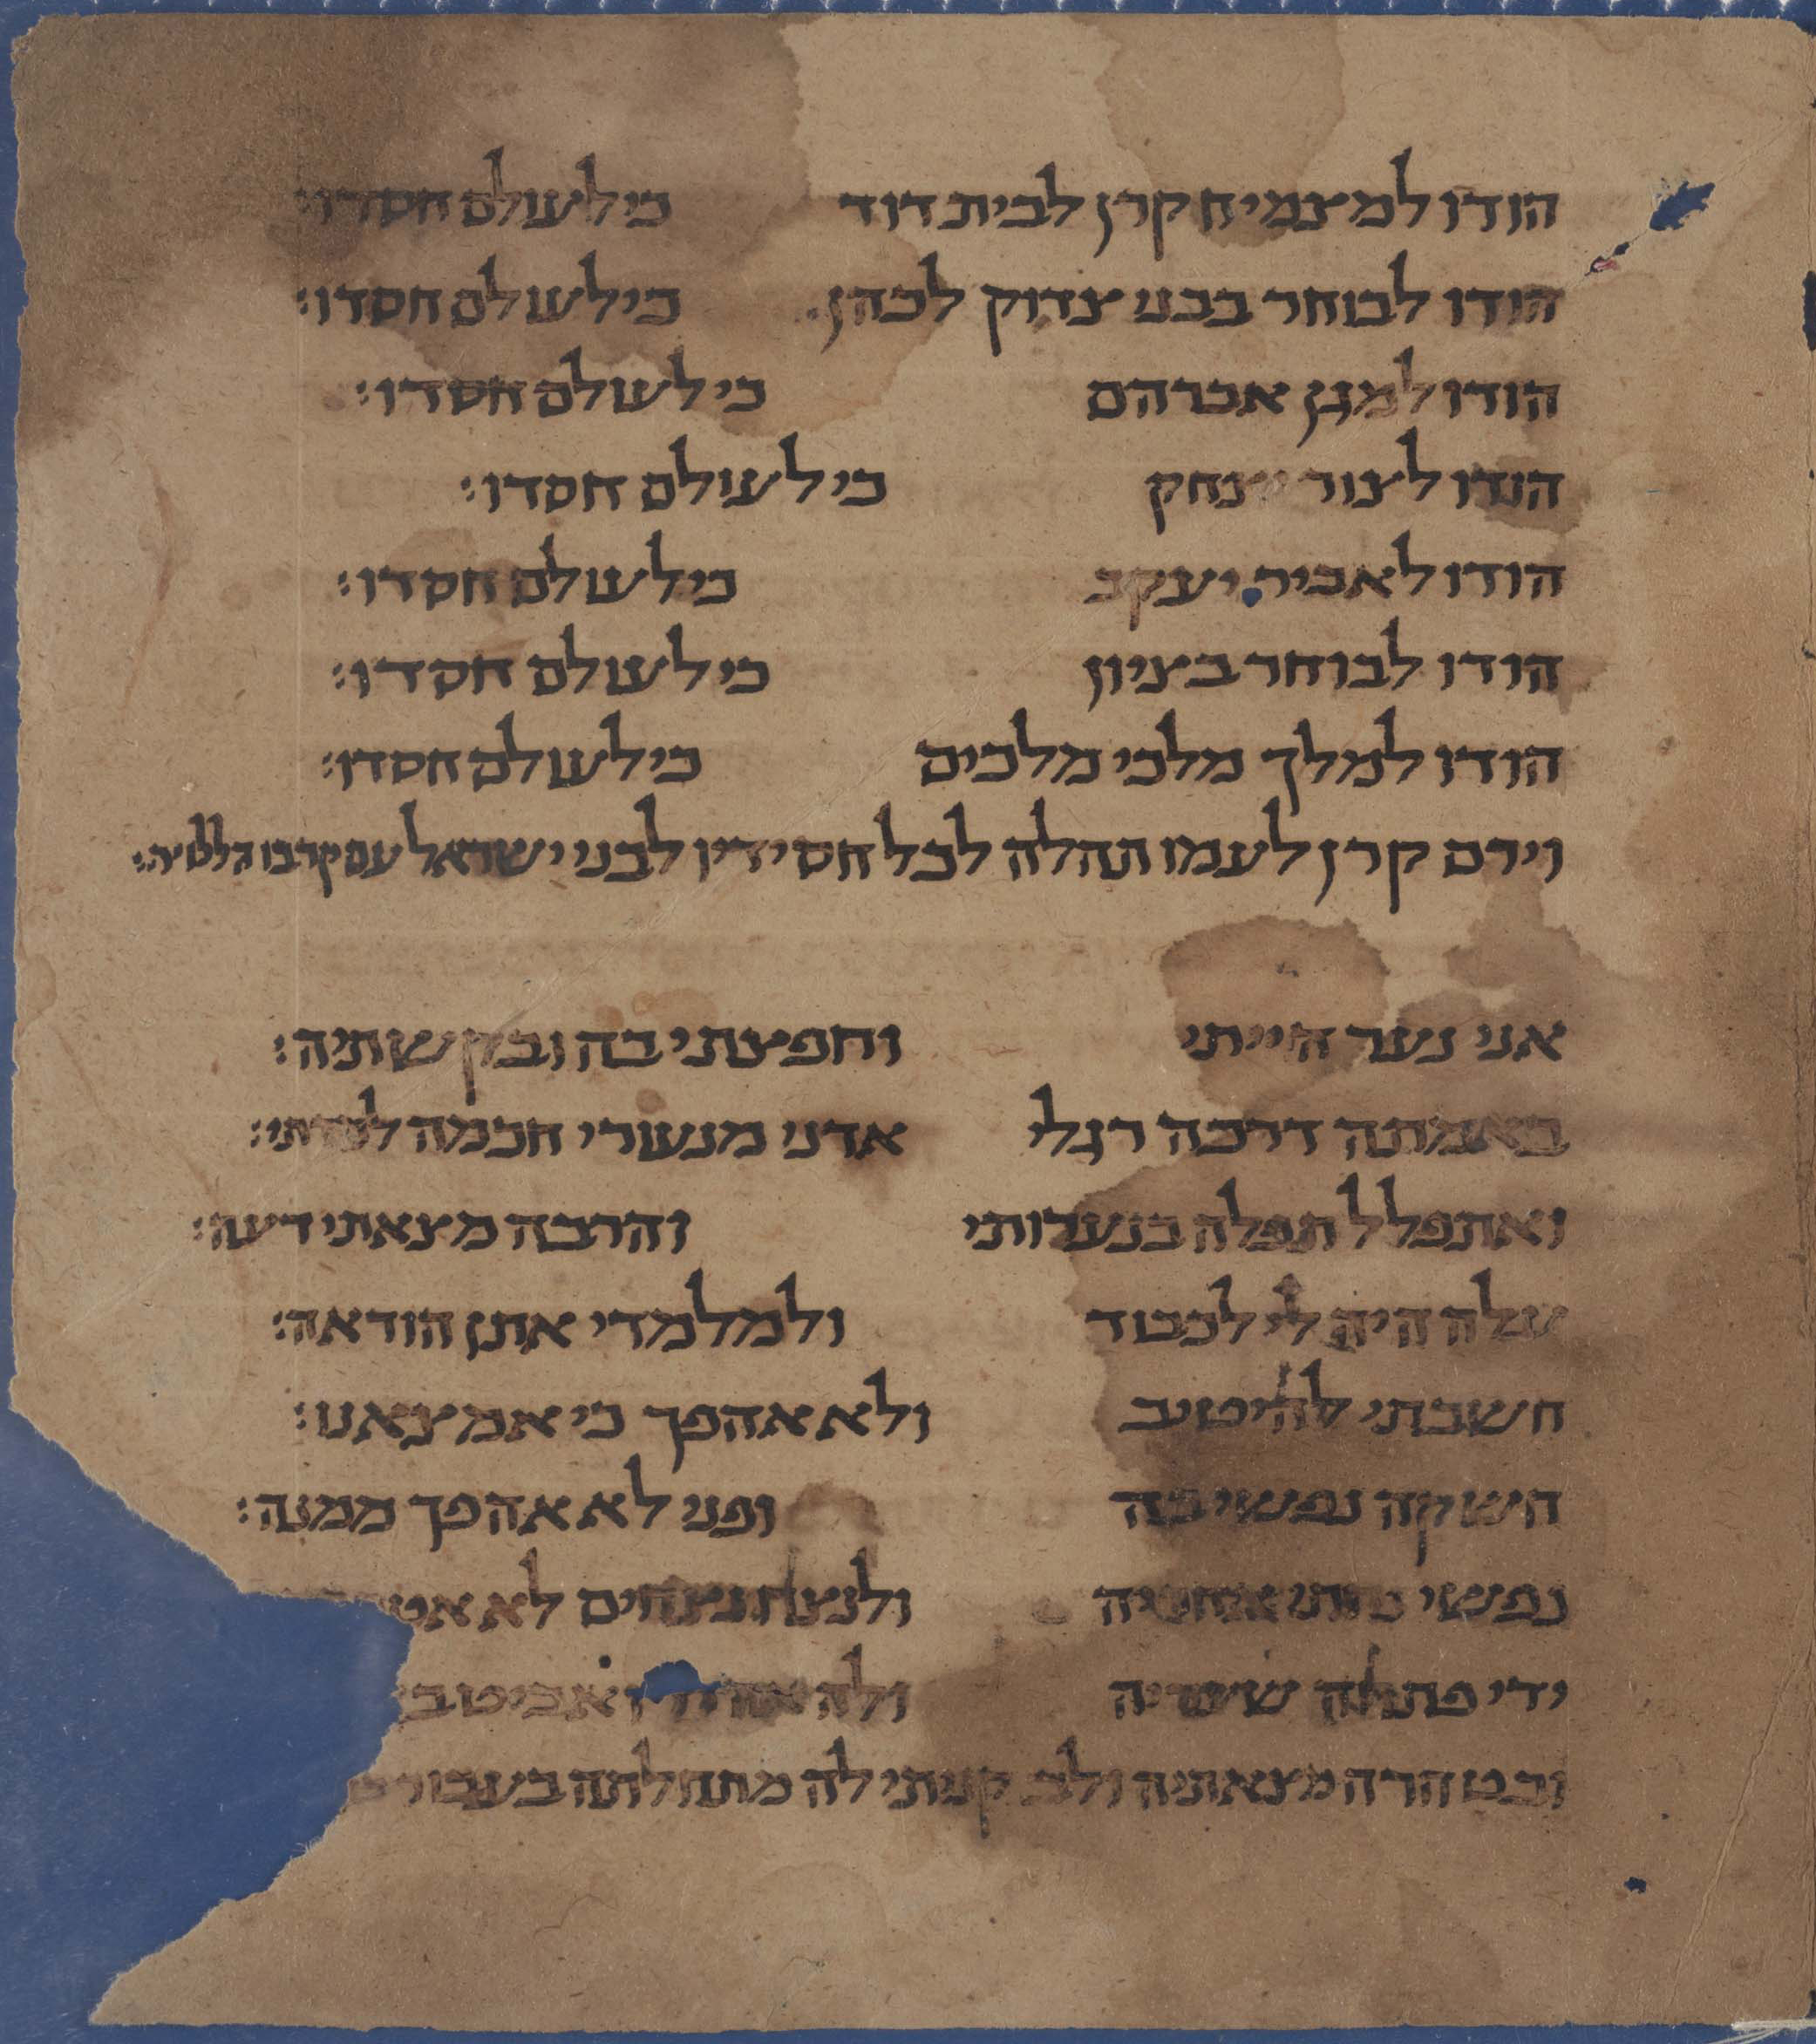 הודו למצמיח קרן לבית דוד כי לעולם חסדו:
הודו לבוחר בבני צדוק לכהן כי לעולם חסדו:
הודו למגן אברהם כי לעולם חסדו:
הודו לצור יצחק כי לעולם חסדו:
הודו לאביר יעקב כי לעולם חסדו:
הודו לבוחר בציון כי לעולם חסדו:
הודו למלך מלכי מלכים כי לעולם חסדו:
וירם קרן לעמו תהלה לכל חסידיו לבני ישראל עם קרבו הללויה:
אני נער הייתי וחפצתי בה ובקשתיה:
באמתה דרכה רגלי אדני מנעורי חכמה למדתי:
ואתפלל תפלה בנערותי והרבה מצאתי דעה:
עלה היה לי לכבוד ולמלמדי אתן הודאה:
חשבתי להיטיב ולא אהפך כי אמצאנו:
חשקה נפשי בה ופני לא אהפך ממנה:
נפשי נתתי אחריה ולנצח נצחים לא
ידי פתחה שעריה ולה אביט ב
ובטהרה מצאתיה ולב קניתי לה מתחלתה בעבור